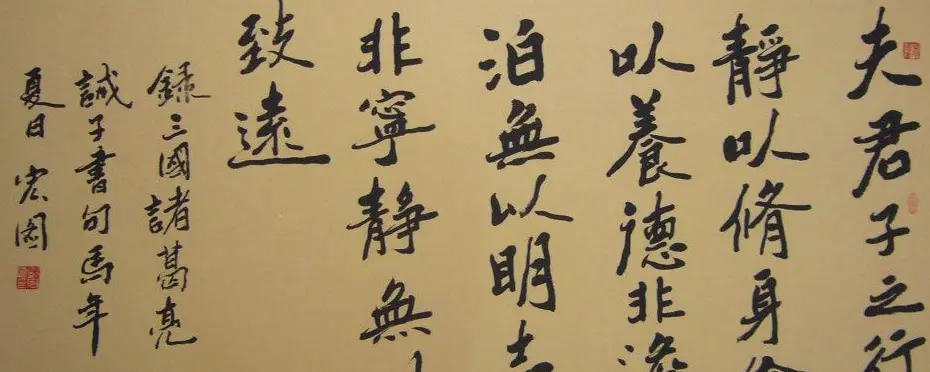 夫君子之行
靜以脩身儉
以養德非澹
泊無以明志
非寧靜無
致遠
録三國諸葛亮
誡子書句馬年
夏日宏图